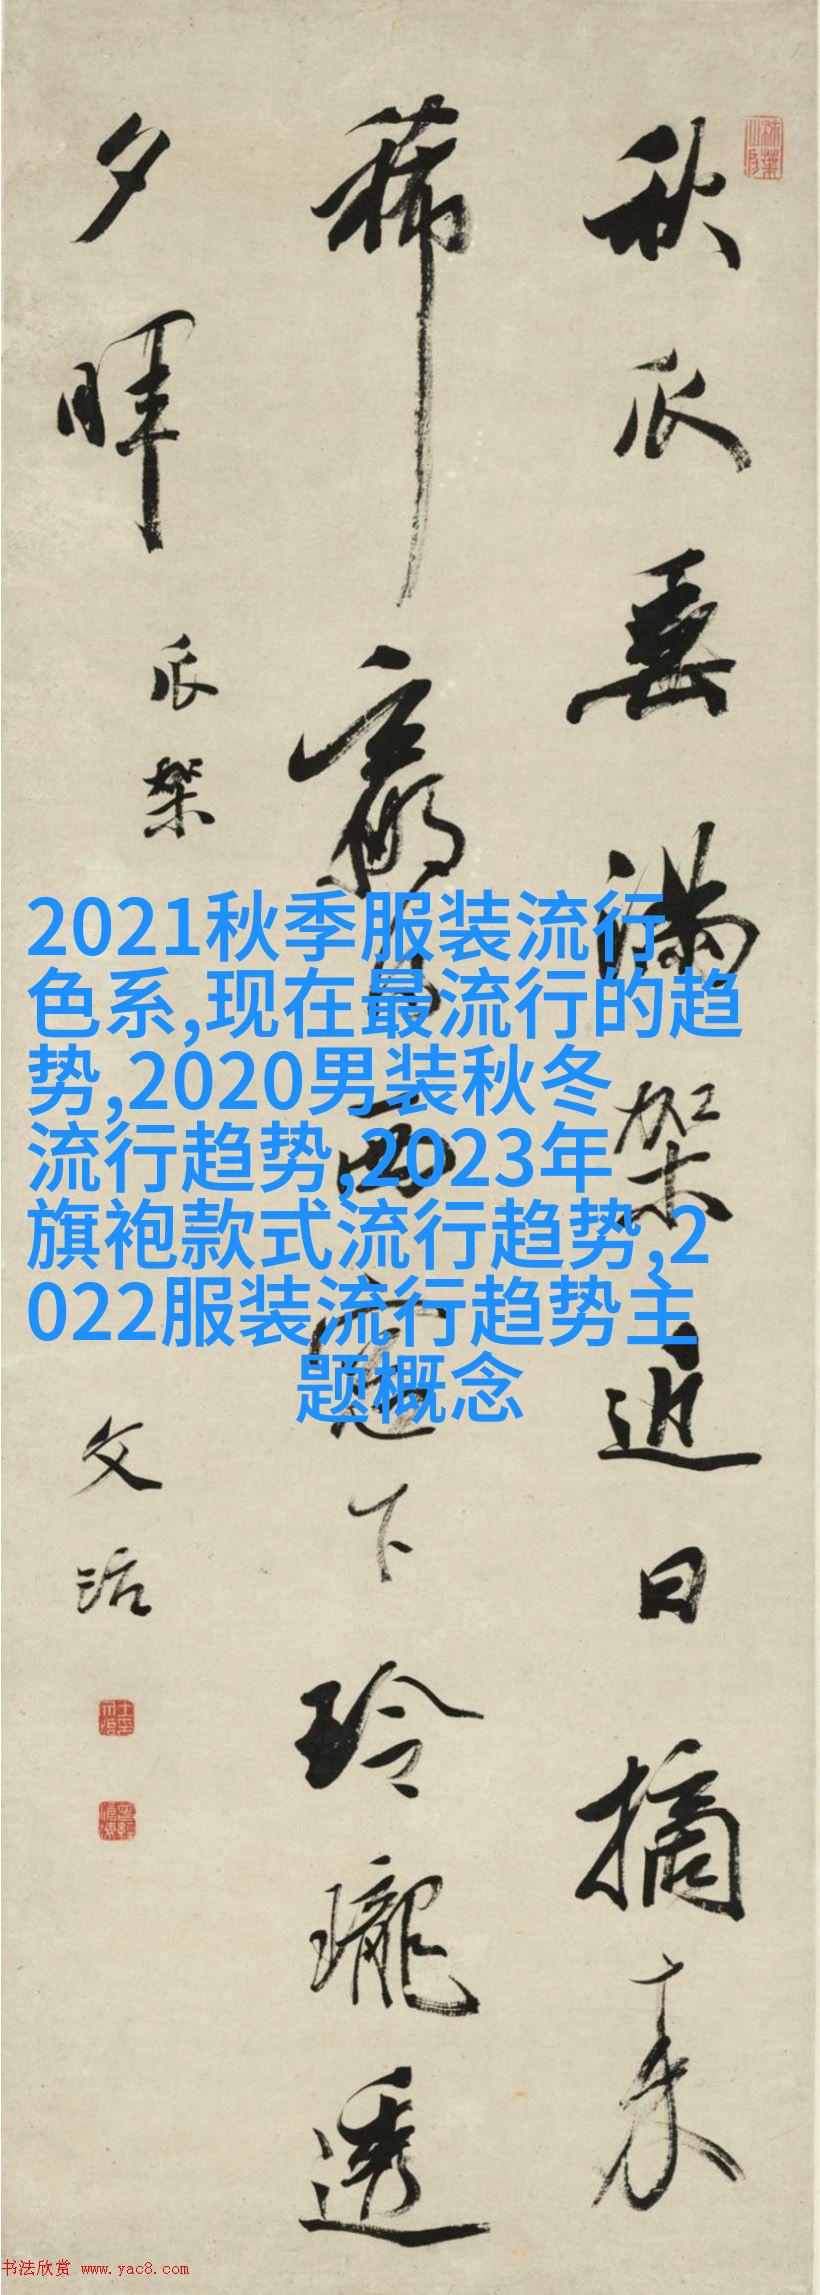 秋瓜垂满架近日摘来
稀赢得西窗下玲瓏透
夕暉
瓜架
文治
2021秋季服装流行
色系,现在最流行的趋
势,2020男装秋冬
流行趋势,2023年
旗袍款式流行趋势,2
022服装流行趋势主
题概念
书法欣赏 www.yac8.com